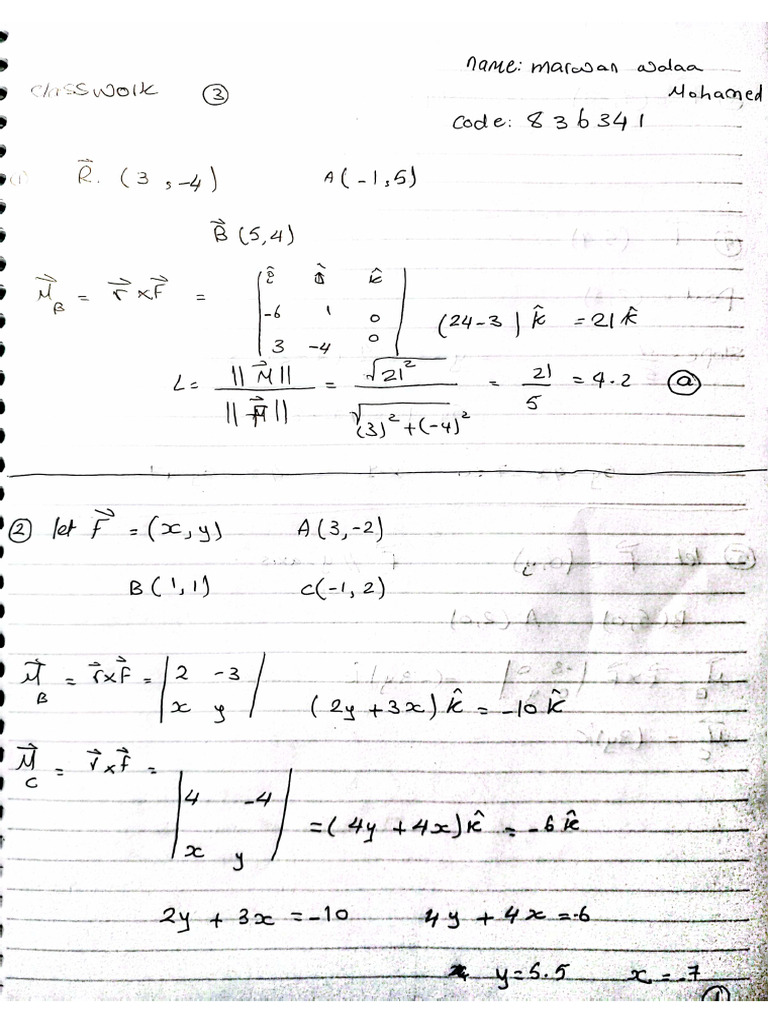 name: marwan walaa
classwork ③ Mohamed
code: 836341
(1) R⃗. (3, -4) A(-1,5)
B⃗ (5,4)
M⃗_B = r⃗ × F⃗ = | î ĵ k̂ |
| -6 1 0 |
| 3 -4 0 | (24-3) k̂ = 21 k̂
L = ||M⃗|| / ||F⃗|| = √21² / √(3)²+(-4)² = 21/5 = 4.2 ⓐ
② let F⃗ = (x, y) A(3, -2)
B(1, 1) C(-1, 2)
M⃗_B = r⃗×F⃗ = | 2 -3 |
| x y | (2y + 3x) k̂ = -10 k̂
M⃗_C = r⃗×F⃗ =
| 4 -4 |
| x y | = (4y + 4x) k̂ = -6 k̂
2y + 3x = -10 4y + 4x = -6
y = 5.5 x = -7
①